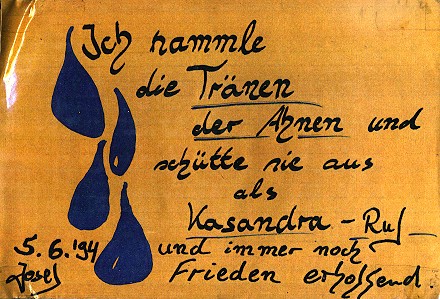 Ich sammle
die Tränen
der Ahnen und
schütte sie aus
als
Kasandra - Ruf
und immer noch
Frieden erhoffend
5.6.'94
Josef